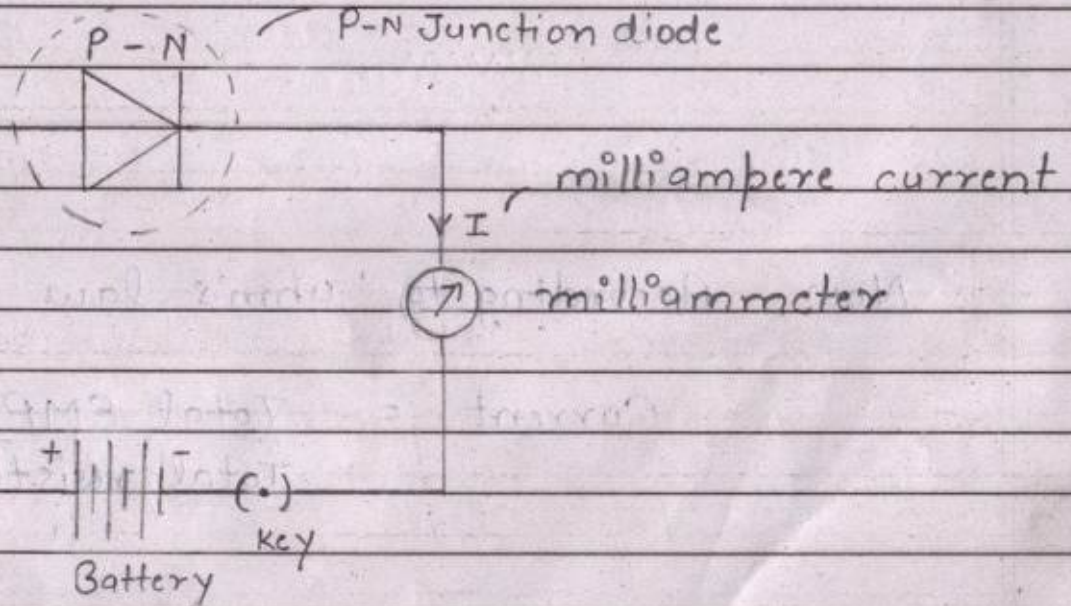 P - N
P-N Junction diode
milliampere current
I
milliammeter
+ -
(•)
key
Battery